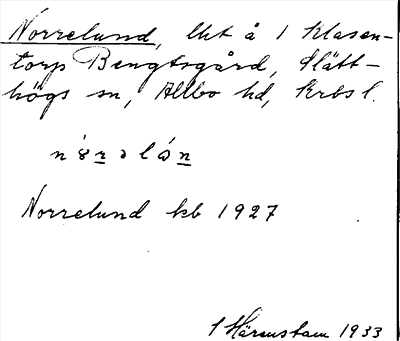 Norrelund, lht å 1 Klasen-
torp Bengtsgård, Slätt-
högs sn, Allbo hd, Krbs l.
Norrelund kb 1927
Härenstam 1933